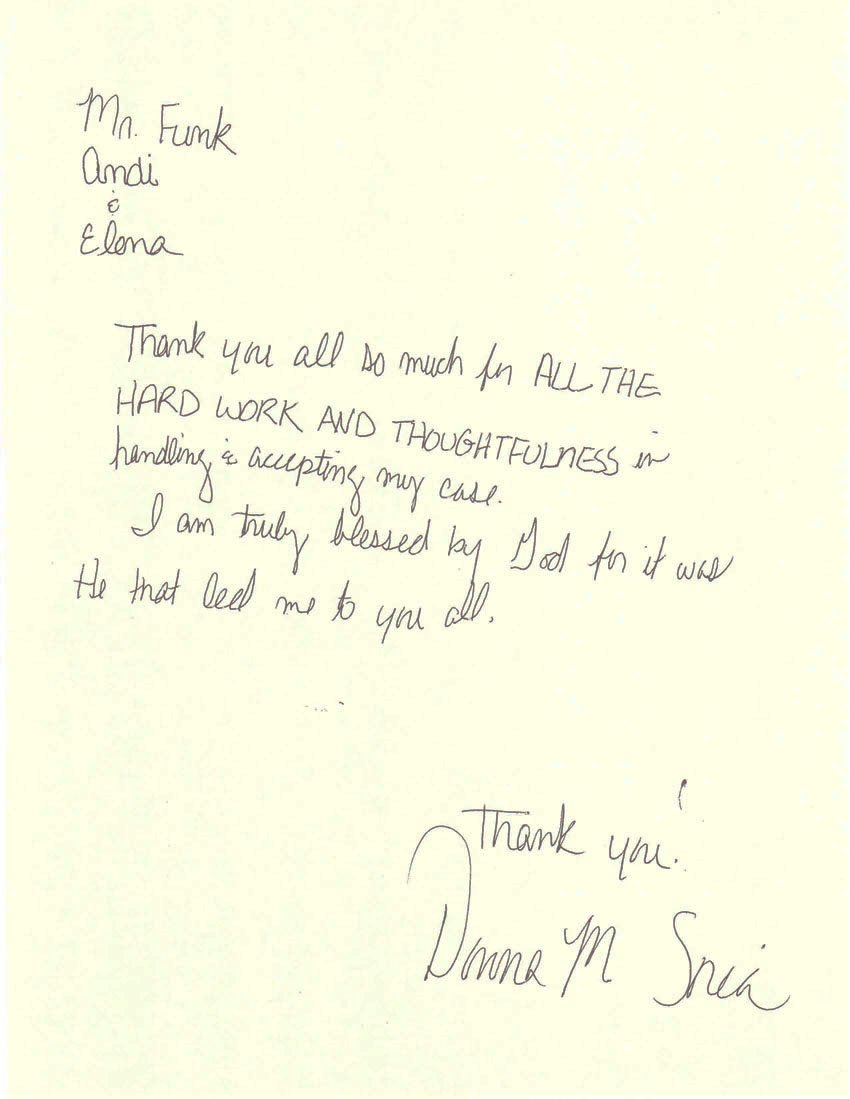 Mr. Funk
Andi
&
Elena
Thank you all so much for ALL THE
HARD WORK AND THOUGHTFULNESS in
handling & accepting my case.
I am truly blessed by God for it was
He that leed me to you all.
Thank you!
Donna M